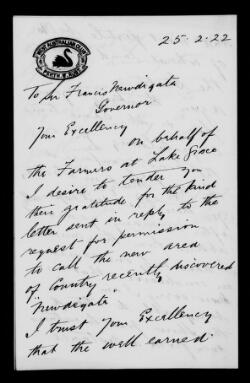 WEST AUSTRALIAN CLUB
PERTH, W.A.
25.2.22
To Sir Francis Newdigate
Governor
Your Excellency
on behalf of
the Farmers at Lake Grace
I desire to tender you
their gratitude for the kind
letter sent in reply to the
request for permission
to call the new area
of country recently discovered
"Newdigate"
I trust Your Excellency
that the well earned